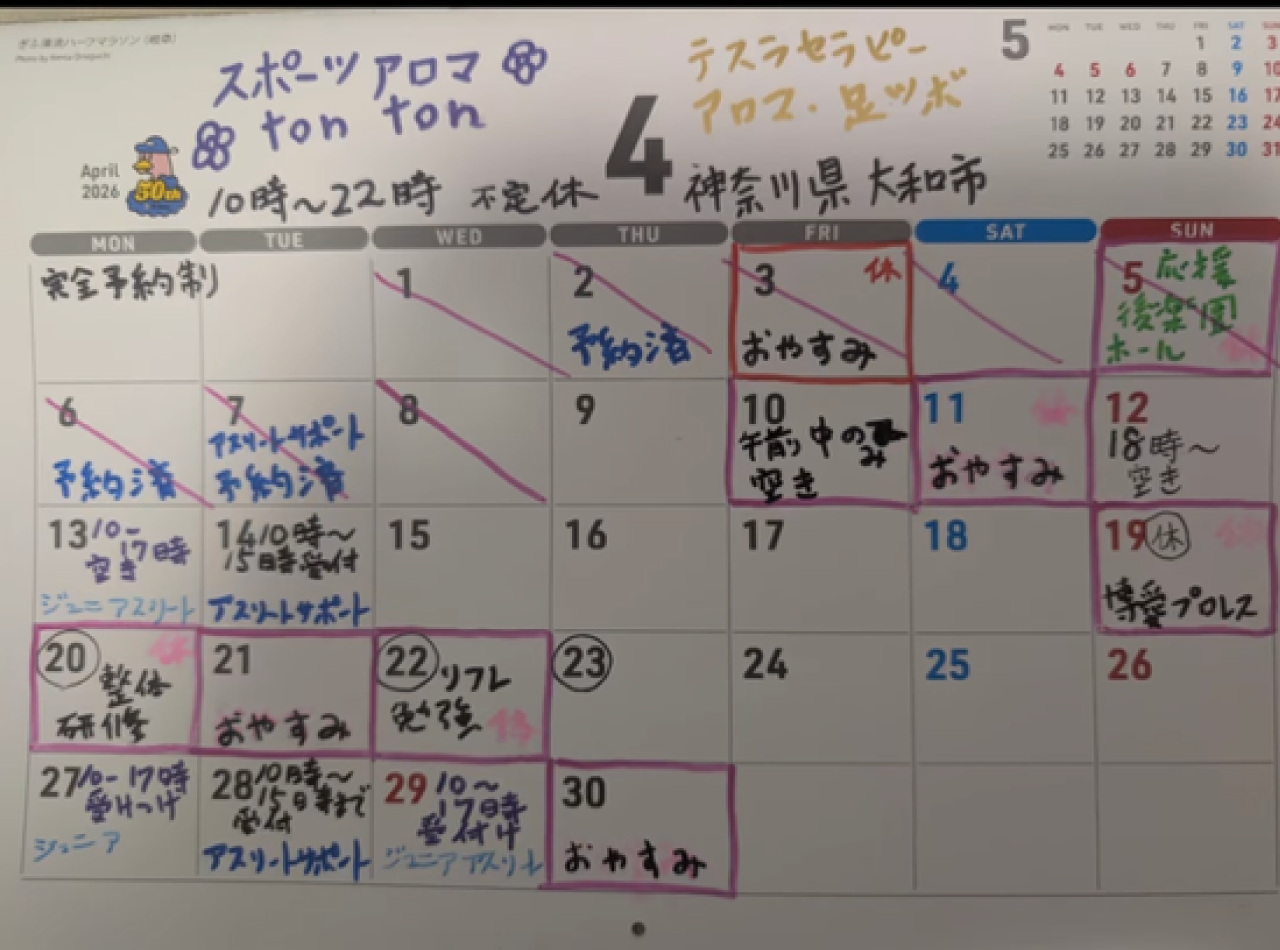 ぎふ清流ハーフマラソン(岐阜)
スポーツアロマ
ton ton
テスラセラピー
アロマ・足ツボ
April
2026
50th
4
10時~22時 不定休
神奈川県 大和市
5
MON TUE WED THU FRI SAT SUN
1 2 3
4 5 6 7 8 9 10
11 12 13 14 15 16 17
18 19 20 21 22 23 24
25 26 27 28 29 30 31
MON TUE WED THU FRI SAT SUN
完全予約制
1
2
予約済
3 休
おやすみ
4
5 応援
後楽園
ホール
6
予約済
7
アスリートサポート
予約済
8
9
10
午前中の
み
空き
11
おやすみ
12
18時~
空き
13 10-
17時
空き
ジュニアアスリート
14 10時~
15時受付
アスリートサポート
15
16
17
18
19 休
博愛プロレス
20 休
整体
研修
21
おやすみ
22 リフレ
勉強
休
23
24
25
26
27 10-17時
受けつけ
ジュニア
28 10時~
15時まで
受付
アスリートサポート
29 10~
17時
受付け
ジュニアアスリート
30
おやすみ